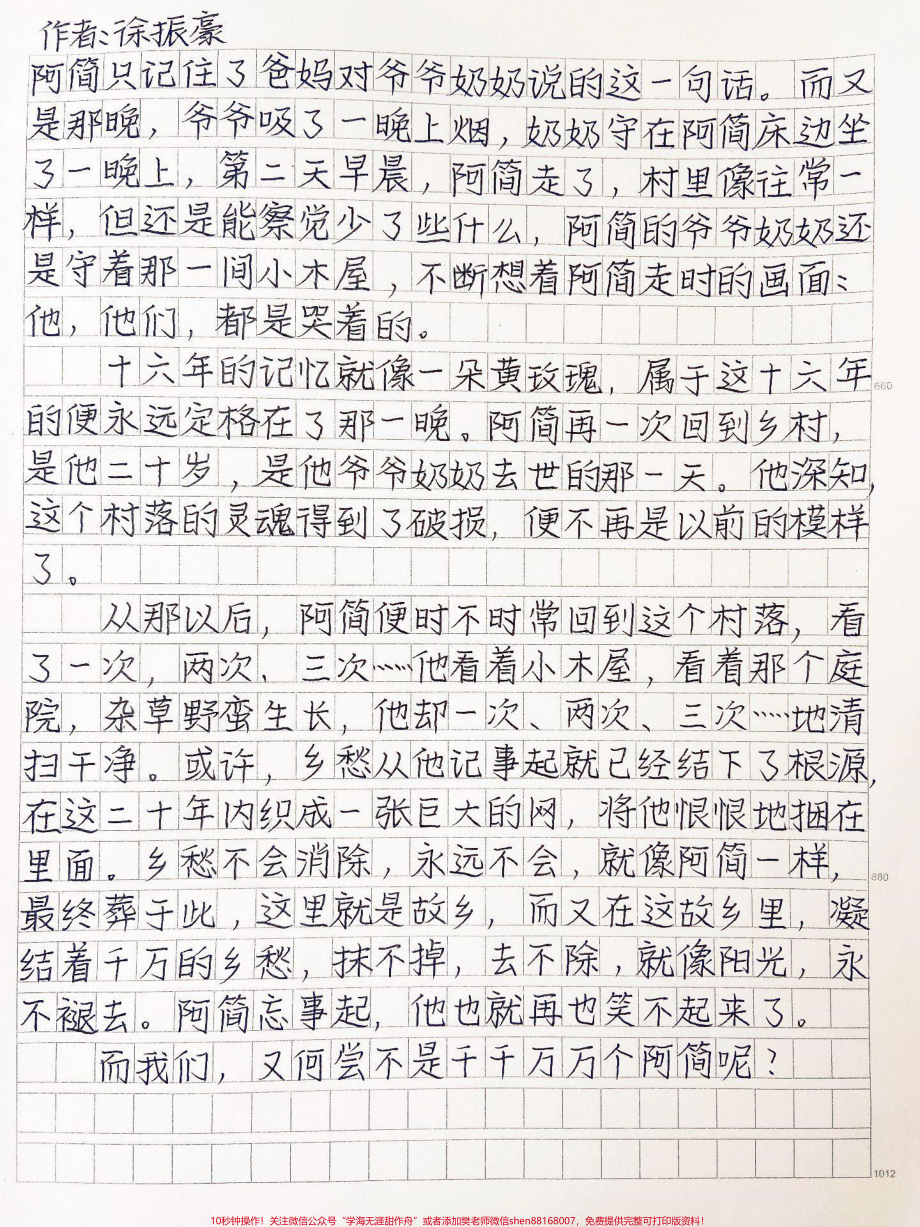 作者:徐振豪
阿简只记住了爸妈对爷爷奶奶说的这一句话。而又
是那晚，爷爷吸了一晚上烟，奶奶守在阿简床边坐
了一晚上，第二天早晨，阿简走了，村里像往常一
样，但还是能察觉少了些什么，阿简的爷爷奶奶还
是守着那一间小木屋，不断想着阿简走时的画面：
他，他们，都是哭着的。
十六年的记忆就像一朵黄玫瑰，属于这十六年
660
的便永远定格在了那一晚。阿简再一次回到乡村，
是他二十岁，是他爷爷奶奶去世的那一天。他深知，
这个村落的灵魂得到了破损，便不再是以前的模样
了。
从那以后，阿简便时不时常回到这个村落，看
了一次，两次、三次……他看着小木屋，看着那个庭
院，杂草野蛮生长，他却一次、两次、三次……地清
扫干净。或许，乡愁从他记事起就已经结下了根源，
在这二十年内织成一张巨大的网，将他恨恨地捆在
里面。乡愁不会消除，永远不会，就像阿简一样，
880
最终葬于此，这里就是故乡，而又在这故乡里，凝
结着千万的乡愁，抹不掉，去不除，就像阳光，永
不褪去。阿简忘事起，他也就再也笑不起来了。
而我们，又何尝不是千千万万个阿简呢？
1012
10秒钟操作！关注微信公众号“学海无涯甜作舟”或者添加樊老师微信shen88168007，免费提供完整可打印版资料！